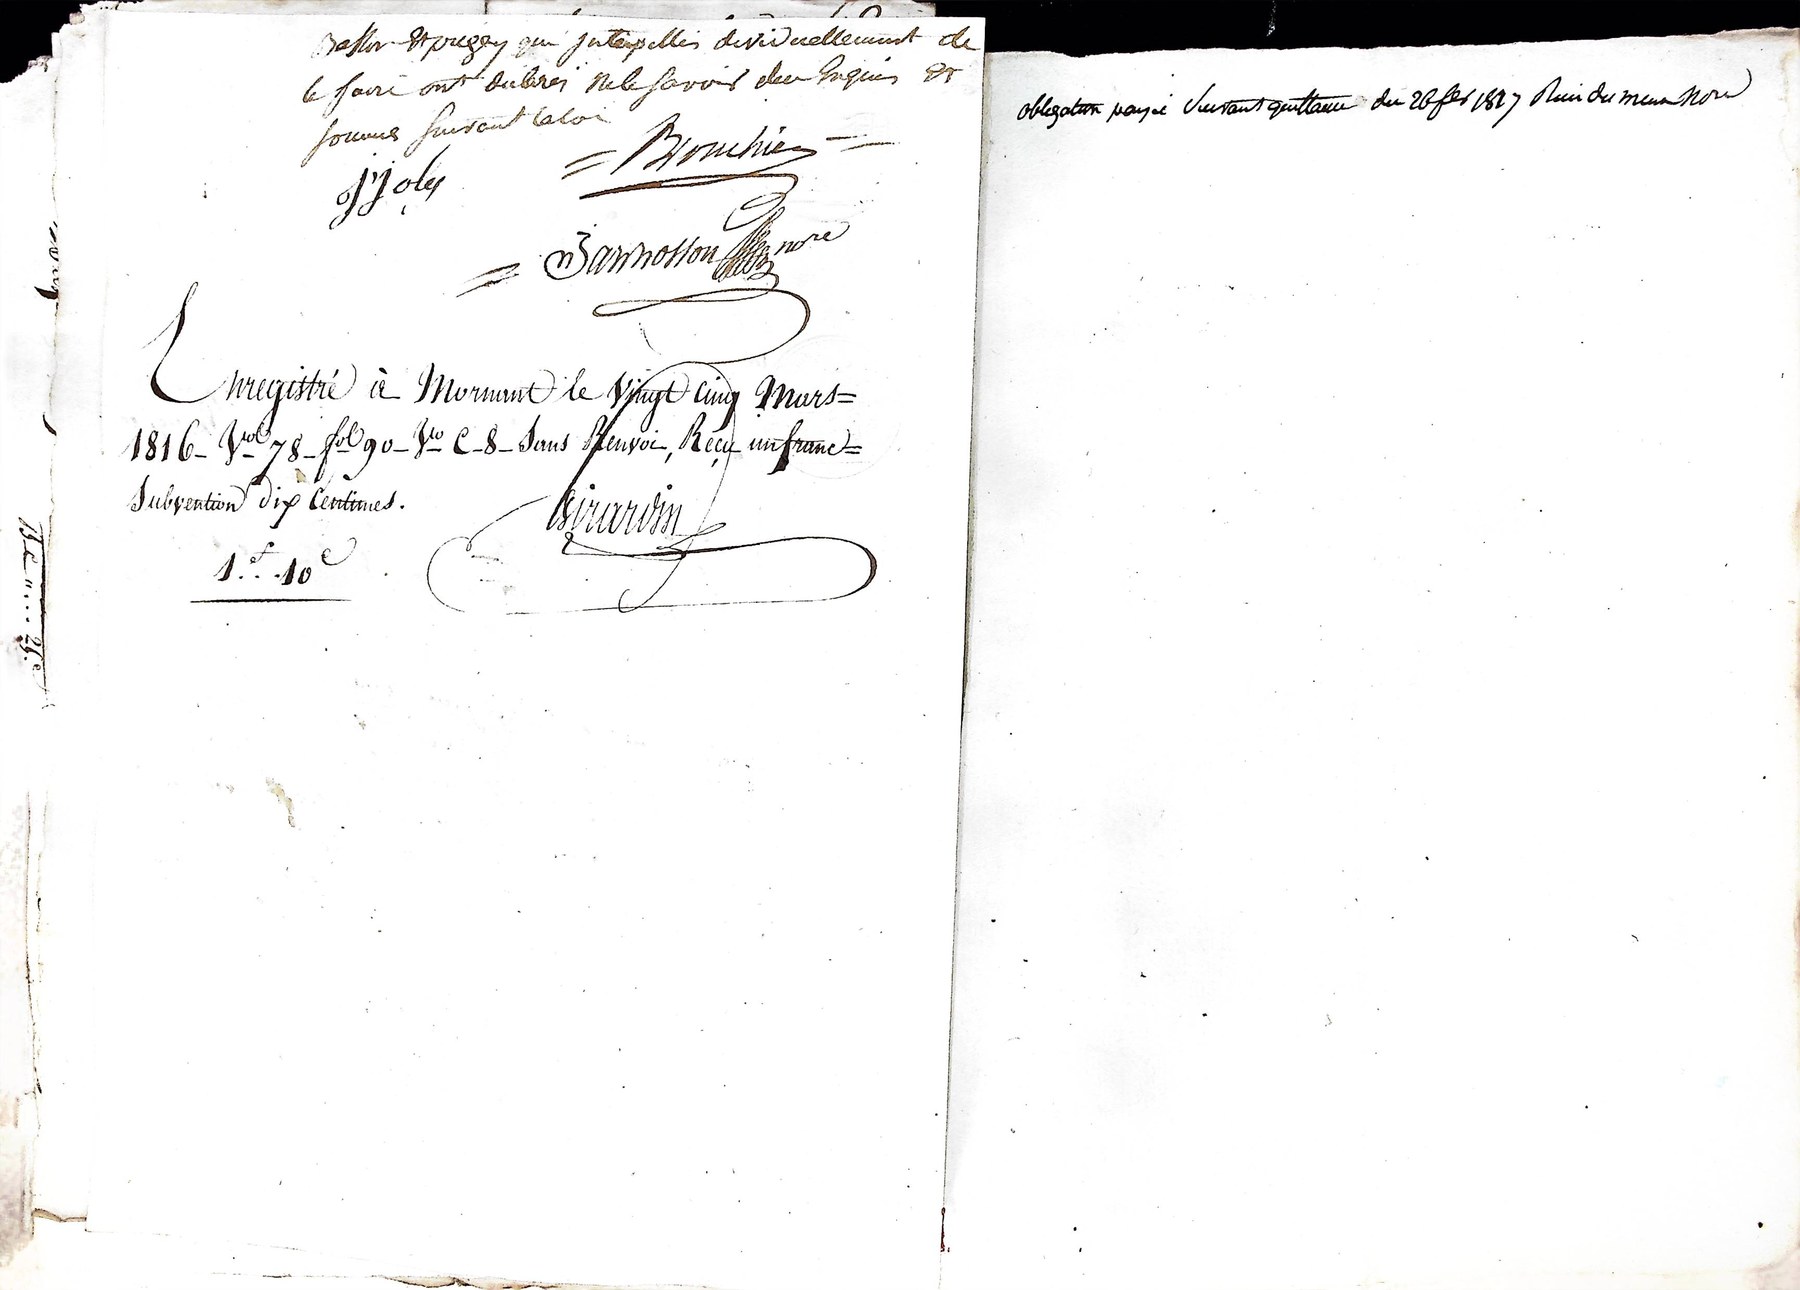 Basson Et pugey qui jntexpellés deviduellement de
le faire ont declaré Ne le savoir dece Enquis Et
sommés suivant la loi
jjoly
Bronchier
Bannosson nore
Enregistré à Mornant le Vingt cinq Mars
1816 - Vol 78 - fol 90 - Vo C - 8 - Sans Renvoi, Reçu un franc
Subvention dix Centimes.
Girardin
1f. 10c
obligation payée suivant quittance du 26 fer 1817 Rein du meme Nore
25c